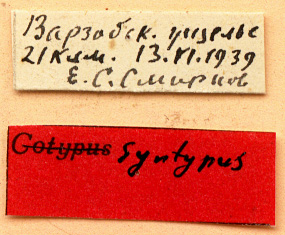 Варзобск. ущелье
21 клм. 13.VI.1939
Е. С. Смирнов
Cotypus Syntypus